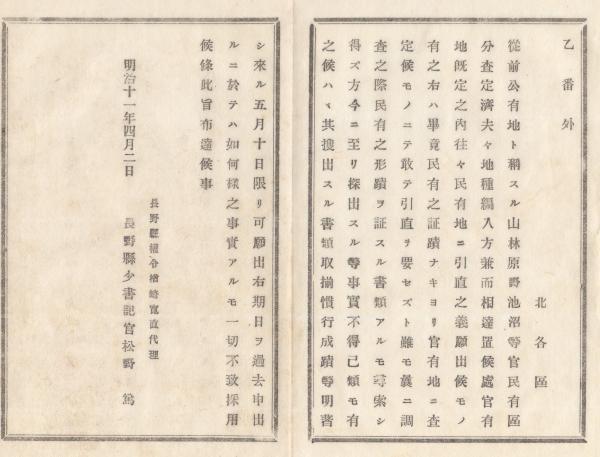 乙番外
北各區
從前公有地ト稱スル山林原野池沼等官民有區
分査定濟夫々地種編入方兼而相達置候處官有
地既定之内往々民有地ニ引直之義願出候モノ
有之右ハ畢竟民有之証蹟ナキヨリ官有地ニ査
定候モノニテ敢テ引直ヲ要セズト雖モ曩ニ調
査之際民有之形蹟ヲ証スル書類アルモ尋索シ
得ズ方今ニ至リ探出スル等事實不得已類モ有
之候ハヾ其搜出スル書類取揃慣行成蹟等明瞭
シ來ル五月十日限リ可願出右期日ヲ過去申出
ルニ於テハ如何樣之事實アルモ一切不致採用
候條此旨布達候事
長野縣權令楢崎寬直代理
明治十一年四月二日 長野縣少書記官松野篤